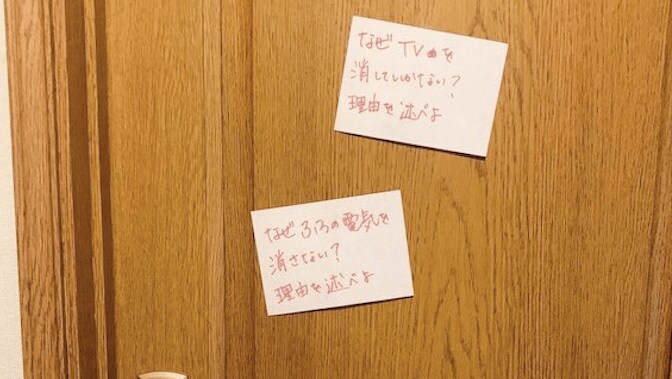 なぜTVを
消していかない?
理由を述べよ
なぜふろの電気を
消さない?
理由を述べよ